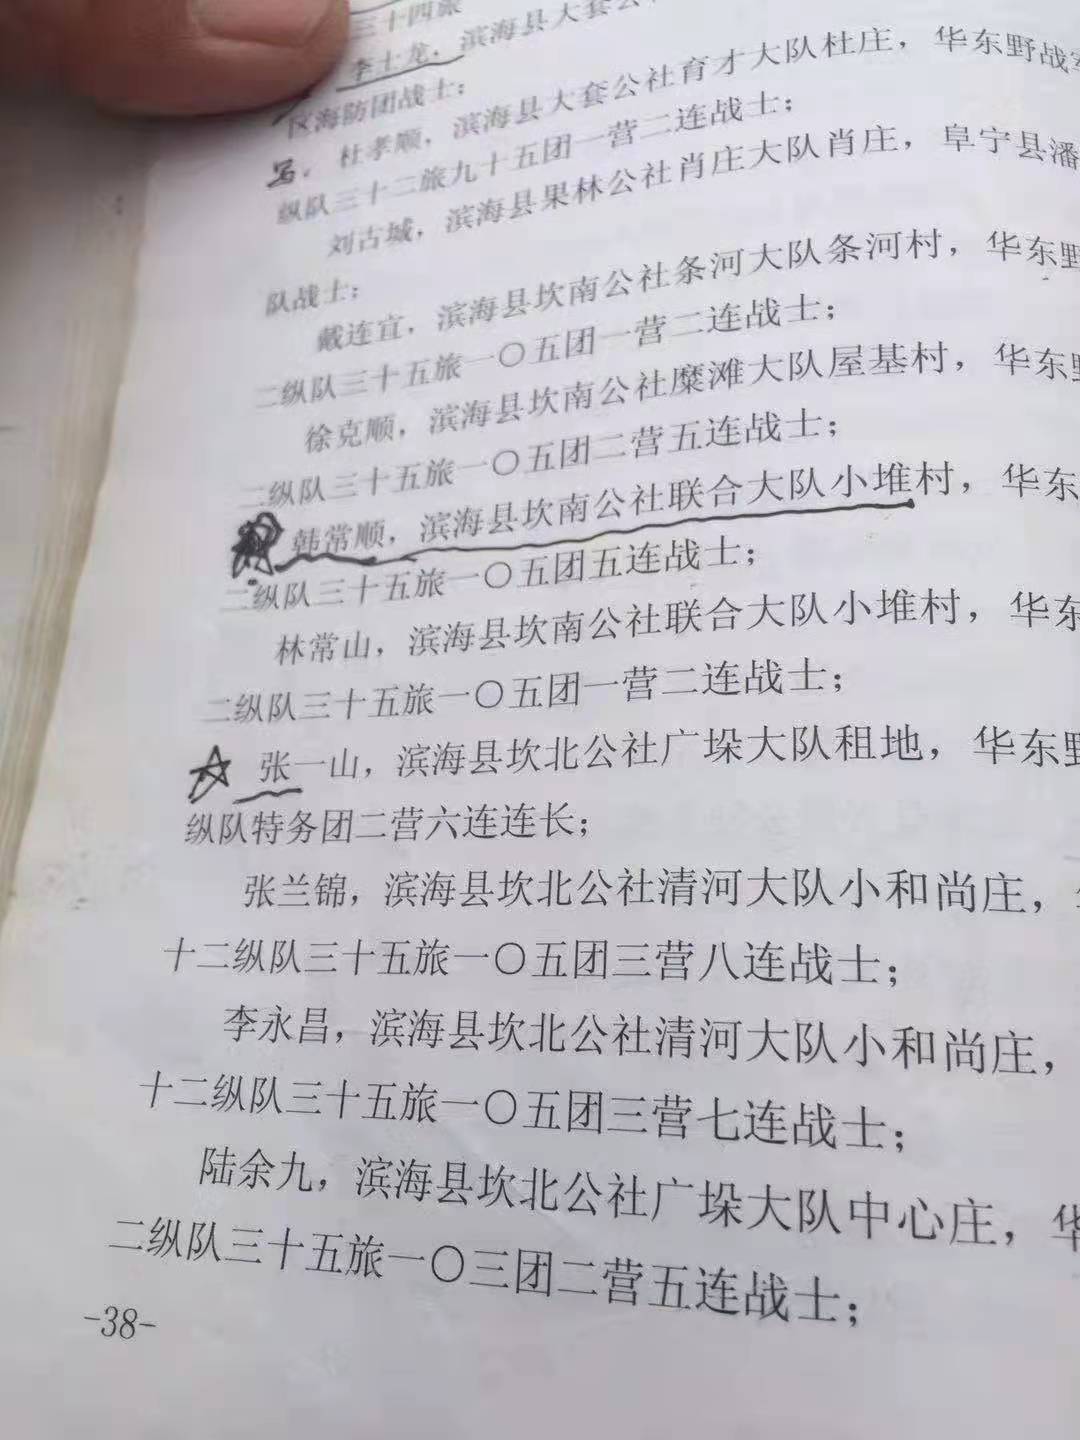 三十四旅
李士龙，滨海县大套公
区海防团战士；
写. 杜孝顺，滨海县大套公社育才大队杜庄，华东野战
纵队三十二旅九十五团一营二连战士；
刘古城，滨海县果林公社肖庄大队肖庄，阜宁县潘
队战士；
戴连宜，滨海县坎南公社条河大队条河村，华东野
二纵队三十五旅一〇五团一营二连战士；
徐克顺，滨海县坎南公社糜滩大队屋基村，华东野
二纵队三十五旅一〇五团二营五连战士；
韩常顺，滨海县坎南公社联合大队小堆村，华东
二纵队三十五旅一〇五团五连战士；
林常山，滨海县坎南公社联合大队小堆村，华东
二纵队三十五旅一〇五团一营二连战士；
张一山，滨海县坎北公社广垛大队租地，华东野
纵队特务团二营六连连长；
张兰锦，滨海县坎北公社清河大队小和尚庄，
十二纵队三十五旅一〇五团三营八连战士；
李永昌，滨海县坎北公社清河大队小和尚庄，
十二纵队三十五旅一〇五团三营七连战士；
陆余九，滨海县坎北公社广垛大队中心庄，华
二纵队三十五旅一〇三团二营五连战士；
-38-